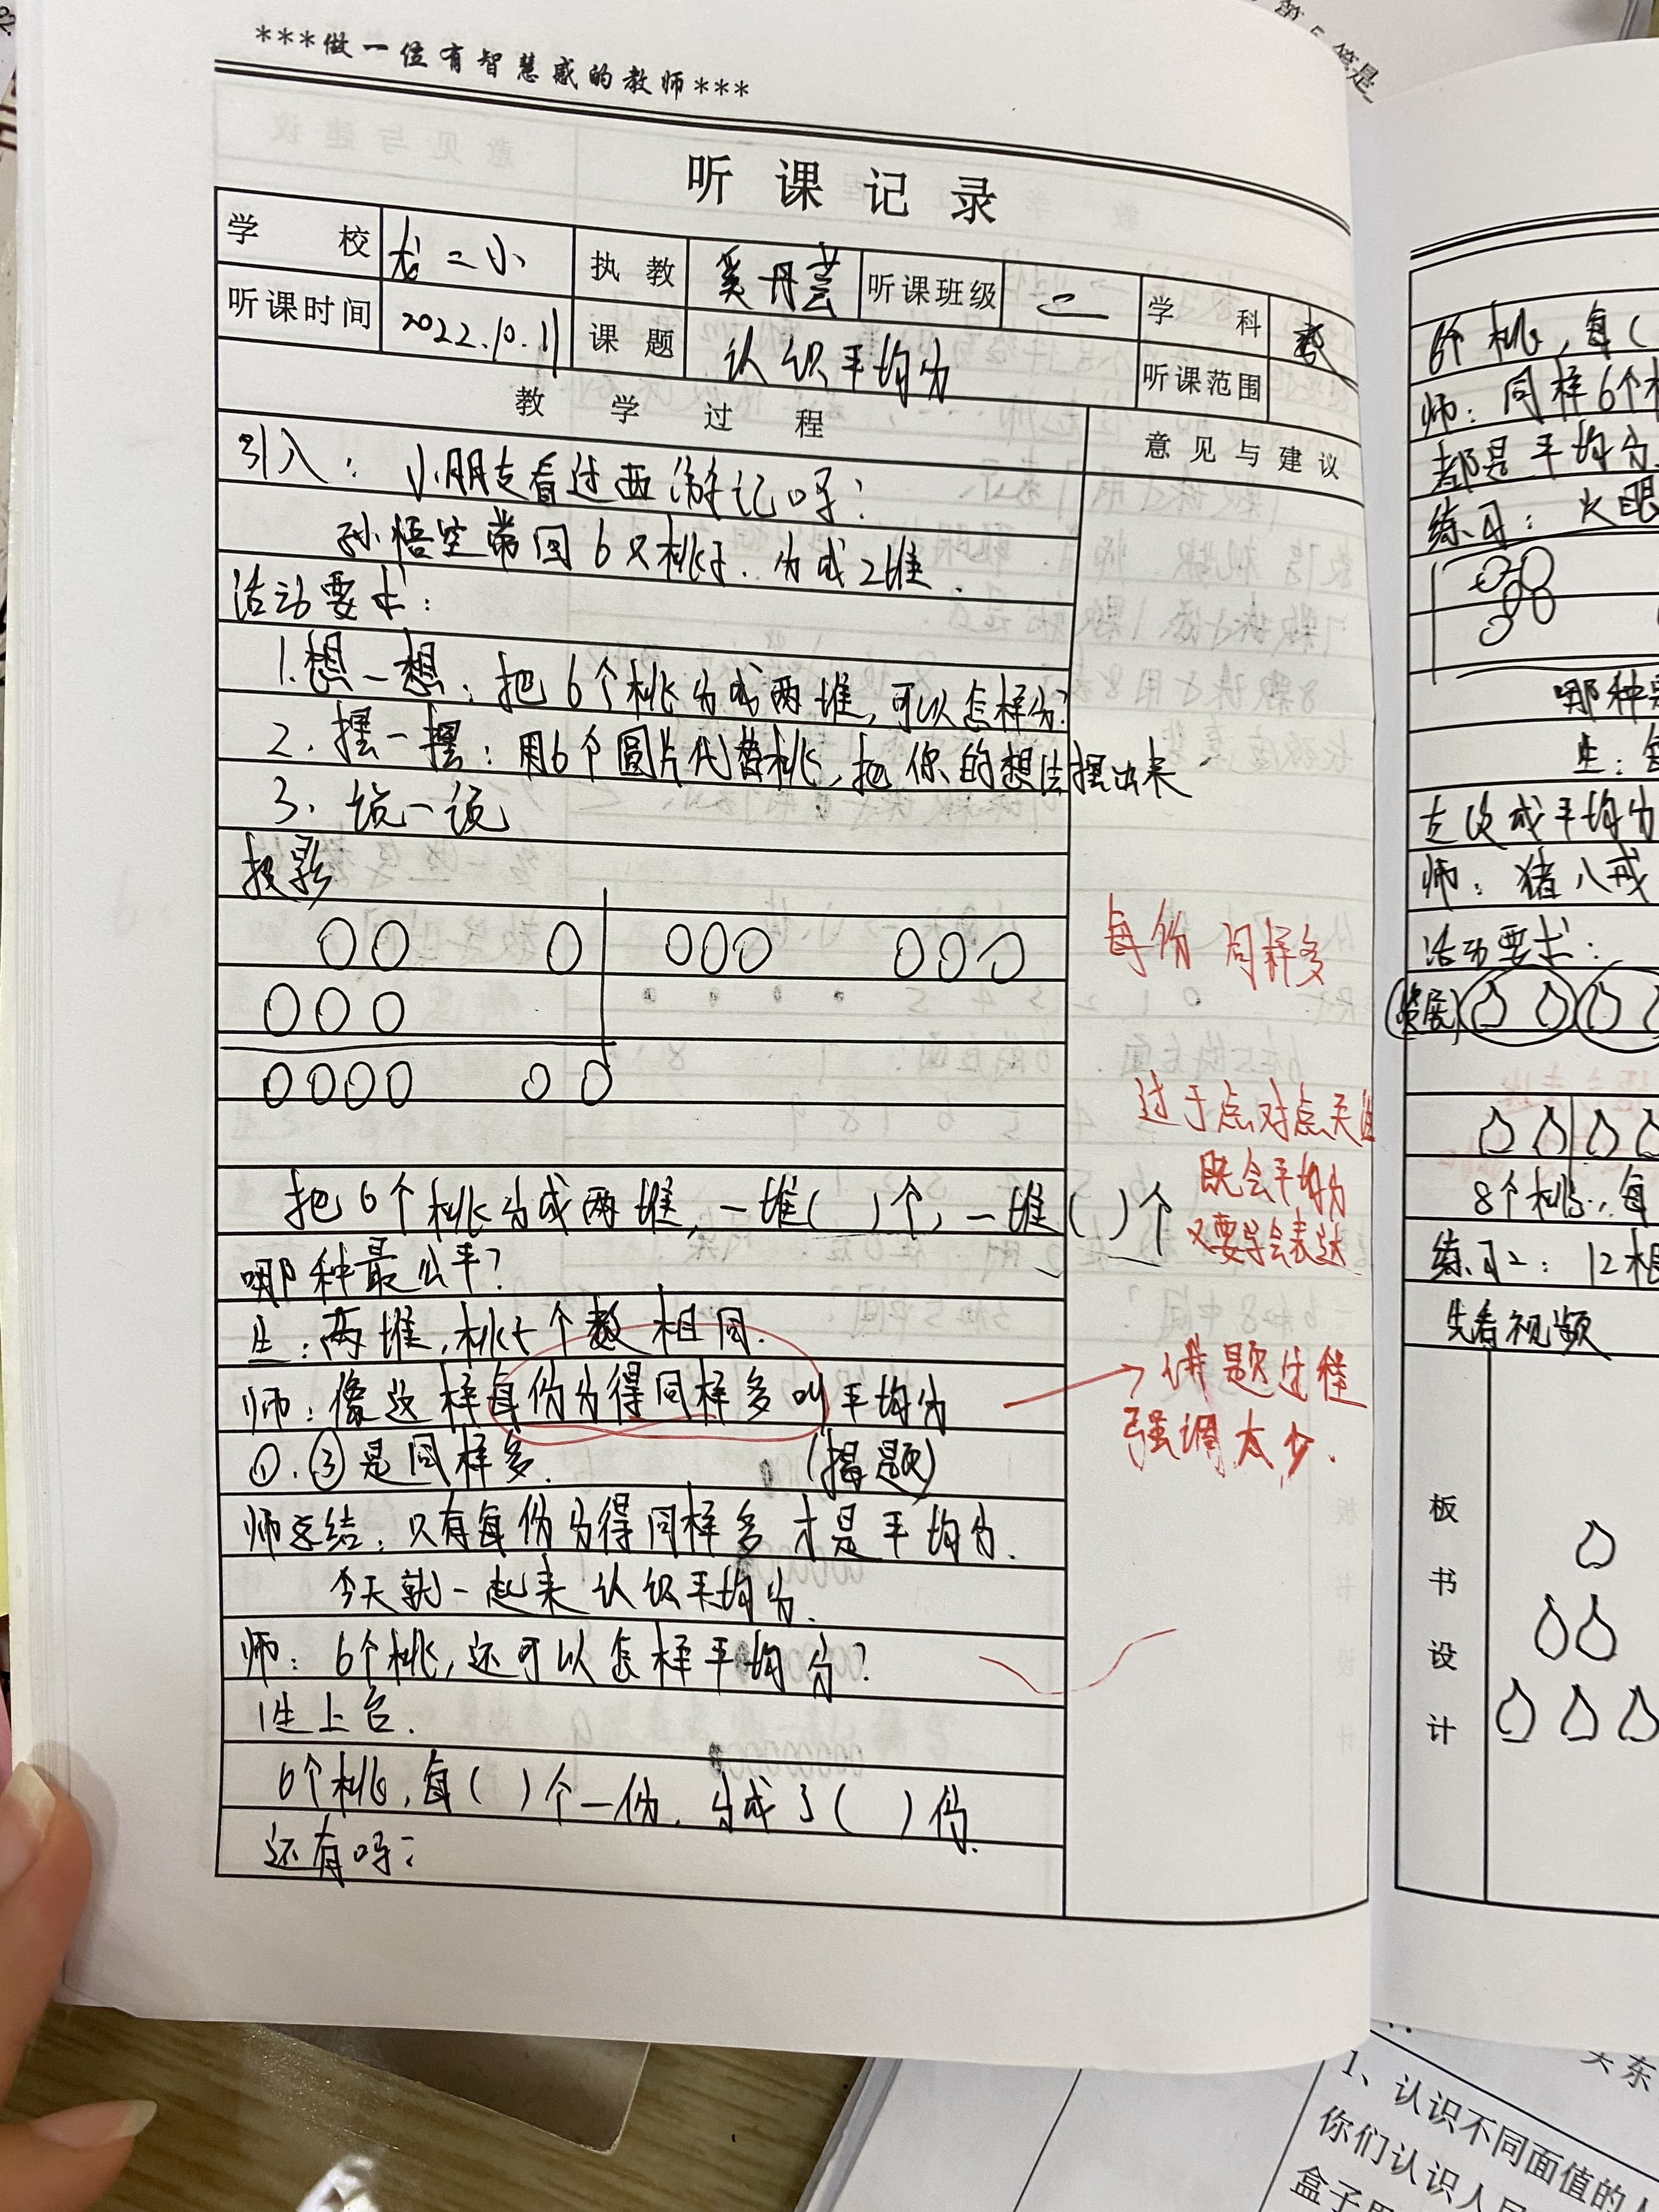 ***做一位有智慧感的教师***
听课记录
学校 二小 执教 奚丹芸 听课班级 二 学科 数
听课时间 2022.10.11 课题 认识平均分 听课范围
教学过程 意见与建议
引入：小朋友看过西游记吗？
孙悟空带回6只桃子.分成2堆.
活动要求：
1.想一想：把6个桃分成两堆,可以怎样分?
2.摆一摆：用6个圆片代替桃,把你的想法摆出来
3、说一说
投影
每份同样多
过于点对点
既会平均分
又要学会表达
把6个桃分成两堆,一堆( )个,一堆( )个
哪种最公平?
生：两堆,桃子个数相同.
师：像这样每份分得同样多叫平均分
→讲题过程
强调太少.
①.③是同样多. (揭题)
师总结：只有每份分得同样多才是平均分.
今天就一起来认识平均分.
师：6个桃,还可以怎样平均分?
1生上台.
6个桃,每( )个一份,分成了( )份.
还有吗？
6个桃,每(
师：同样6个
都是平均分
练习：火眼
哪种
生：
左改成平均分
师：猪八戒
活动要求：
8个桃,每
练习二：12
先看视频
板书设计
1、认识不同面值的
你们认识人
盒子